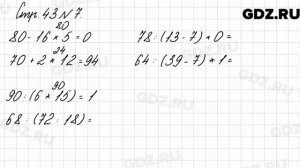 GDZ.RU
Стр. 43 № 7.
80
80 - 16 * 5 = 0
24
70 + 2 * 12 = 94
90
90 : (6 * 15) = 1
68 : (72 : 18) =
78 : (13 - 7) * 0 =
64 : (39 - 7) * 1 =